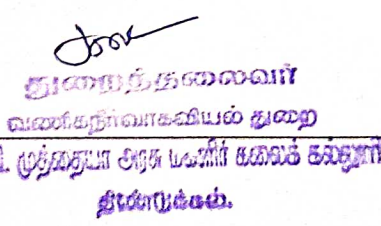 துறைத்தலைவர்
வணிகநிர்வாகவியல் துறை
முத்தையா அரசு மகளிர் கலைக் கல்லூரி
திண்டுக்கல்.